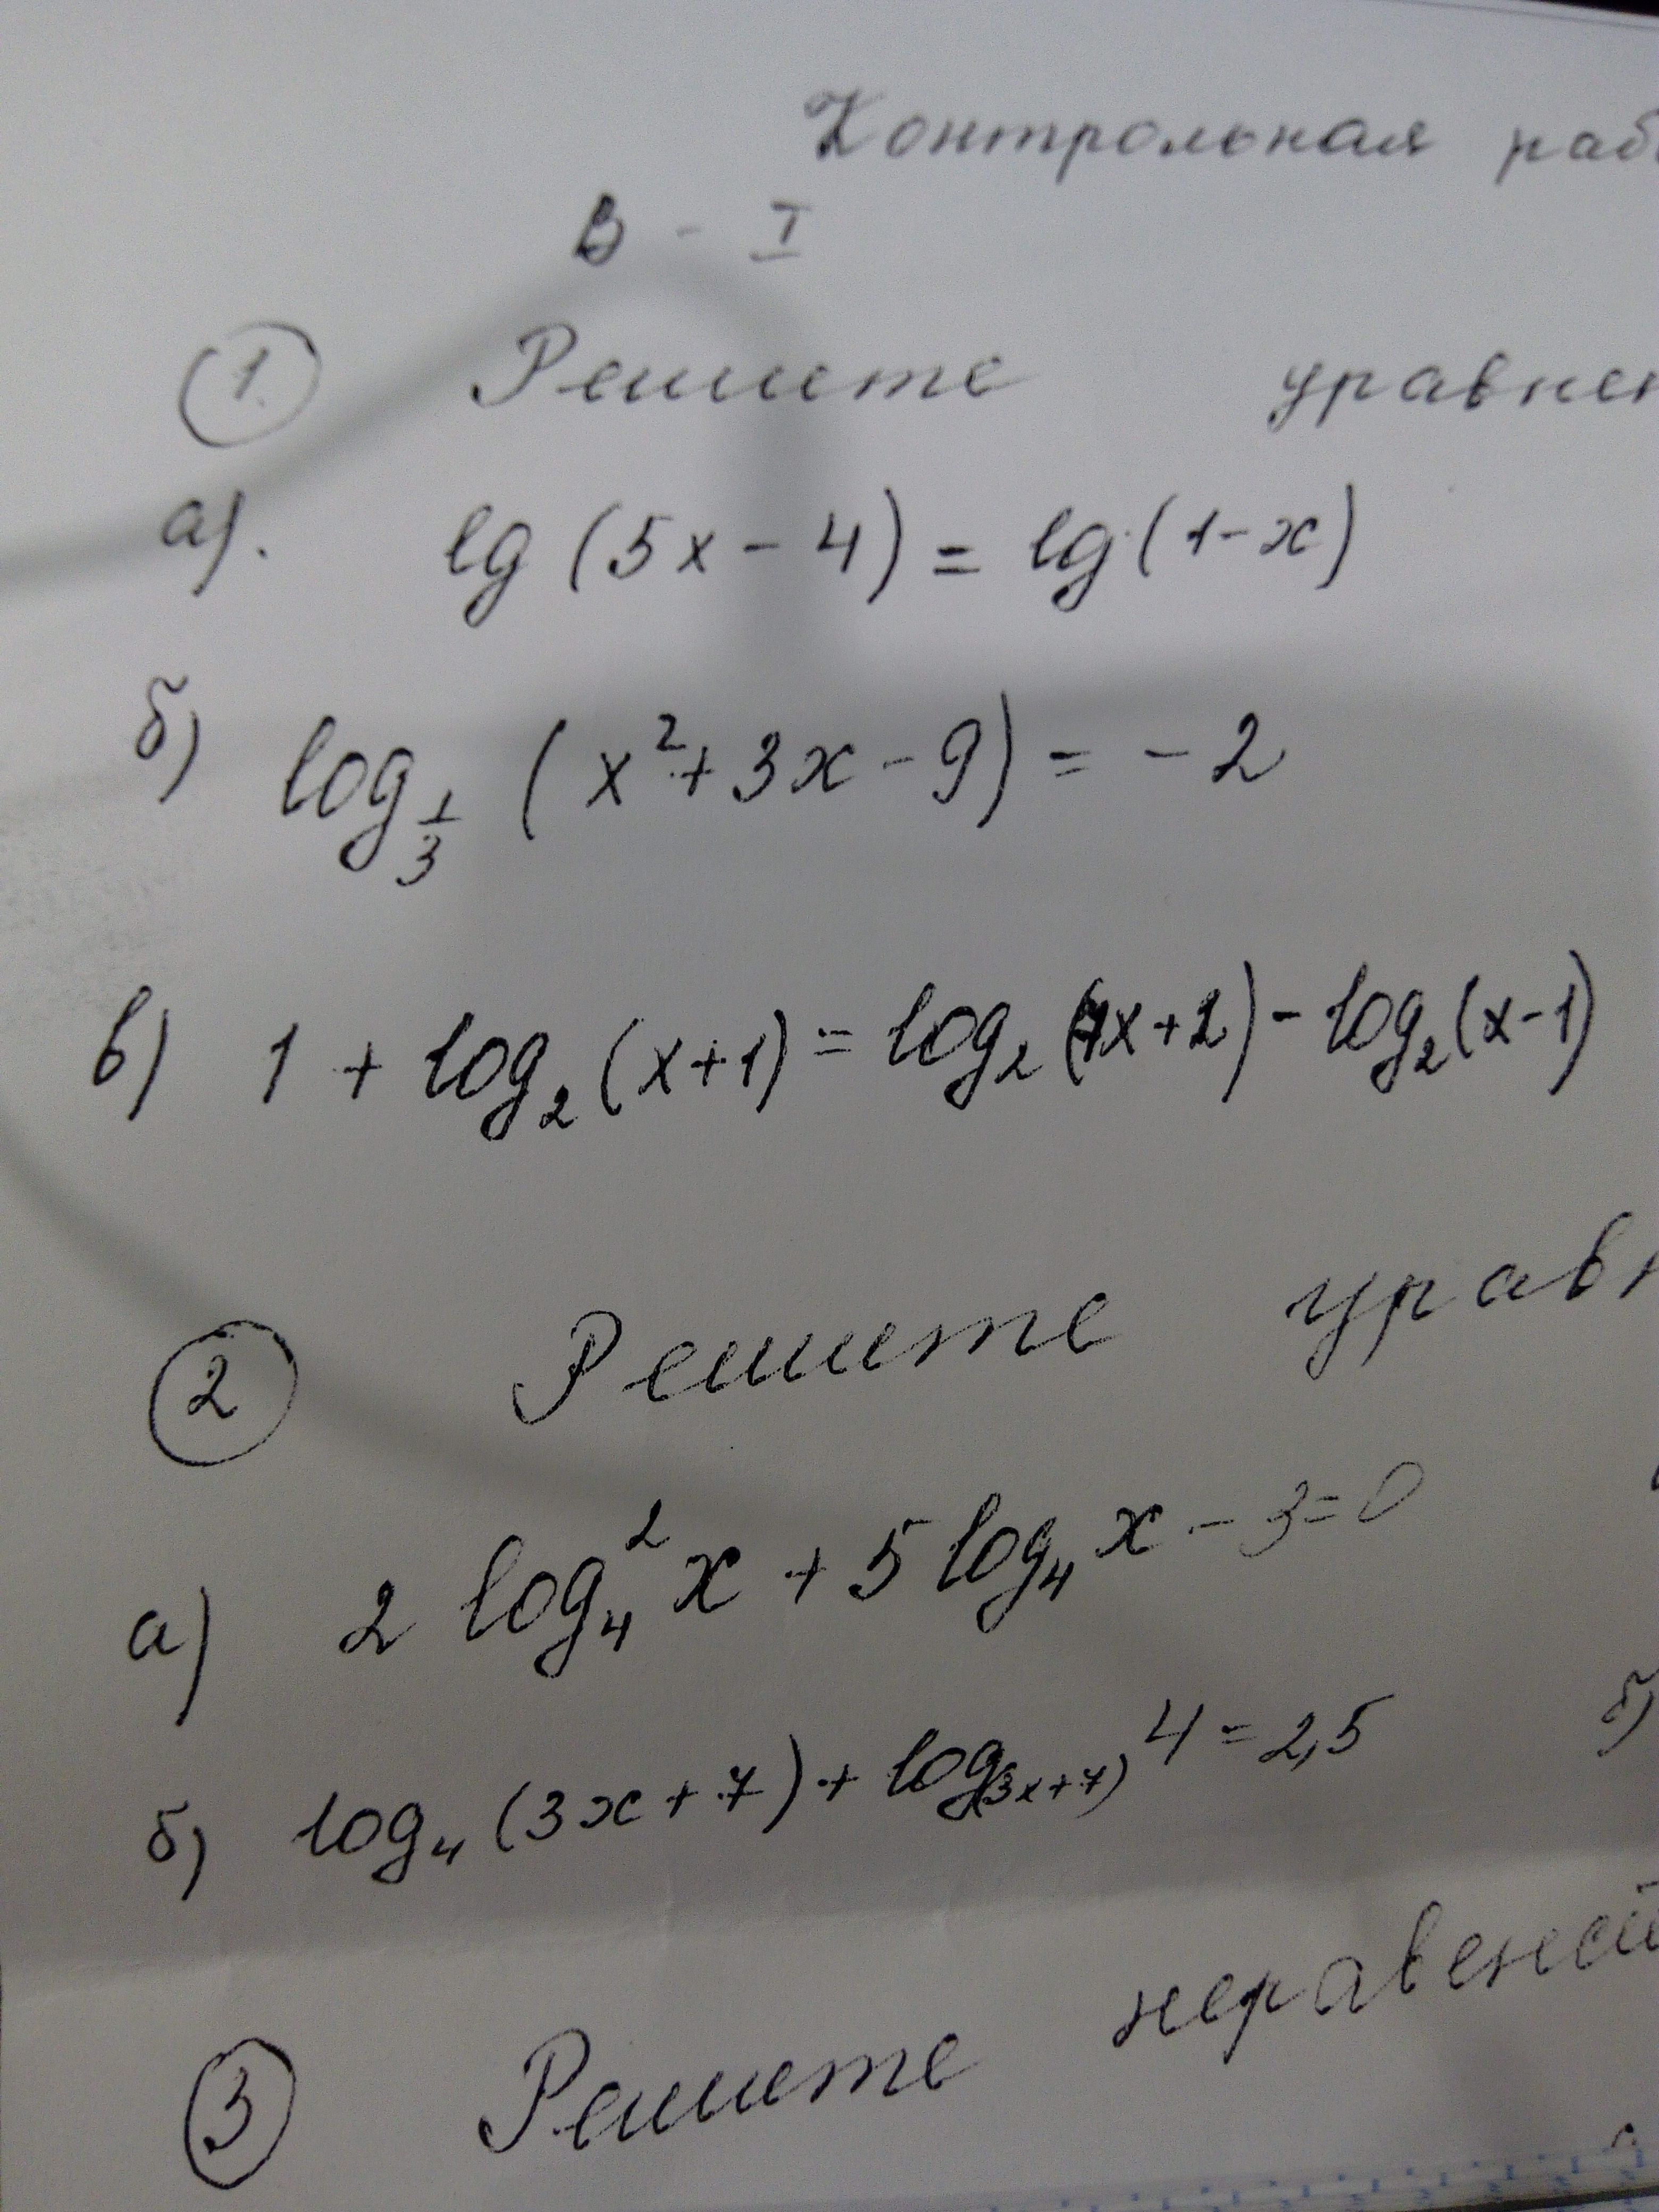 Контрольная раб
В - I
1. Решите уравнен
а). lg (5x - 4) = lg (1 - x)
б) log_{1/3} (x² + 3x - 9) = - 2
в) 1 + log₂ (x + 1) = log₂ (7x + 2) - log₂ (x - 1)
2 Решите уравн
а) 2 log₄² x + 5 log₄ x - 3 = 0
б) log₄ (3x + 7) + log_{(3x + 7)} 4 = 2,5
б)
3 Решите неравенст